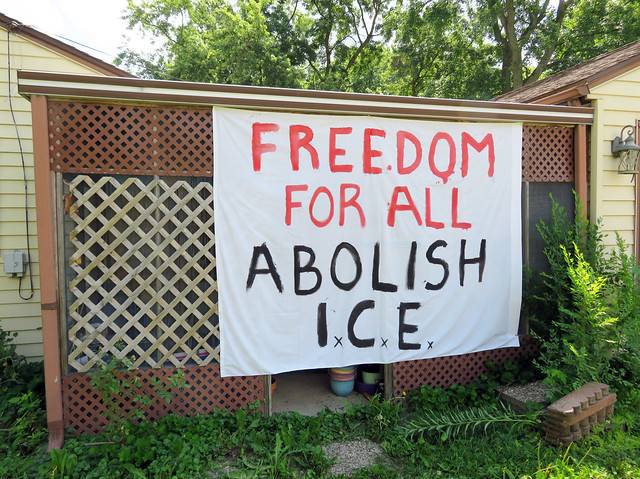 FREEDOM
FOR ALL
ABOLISH
I.C.E.